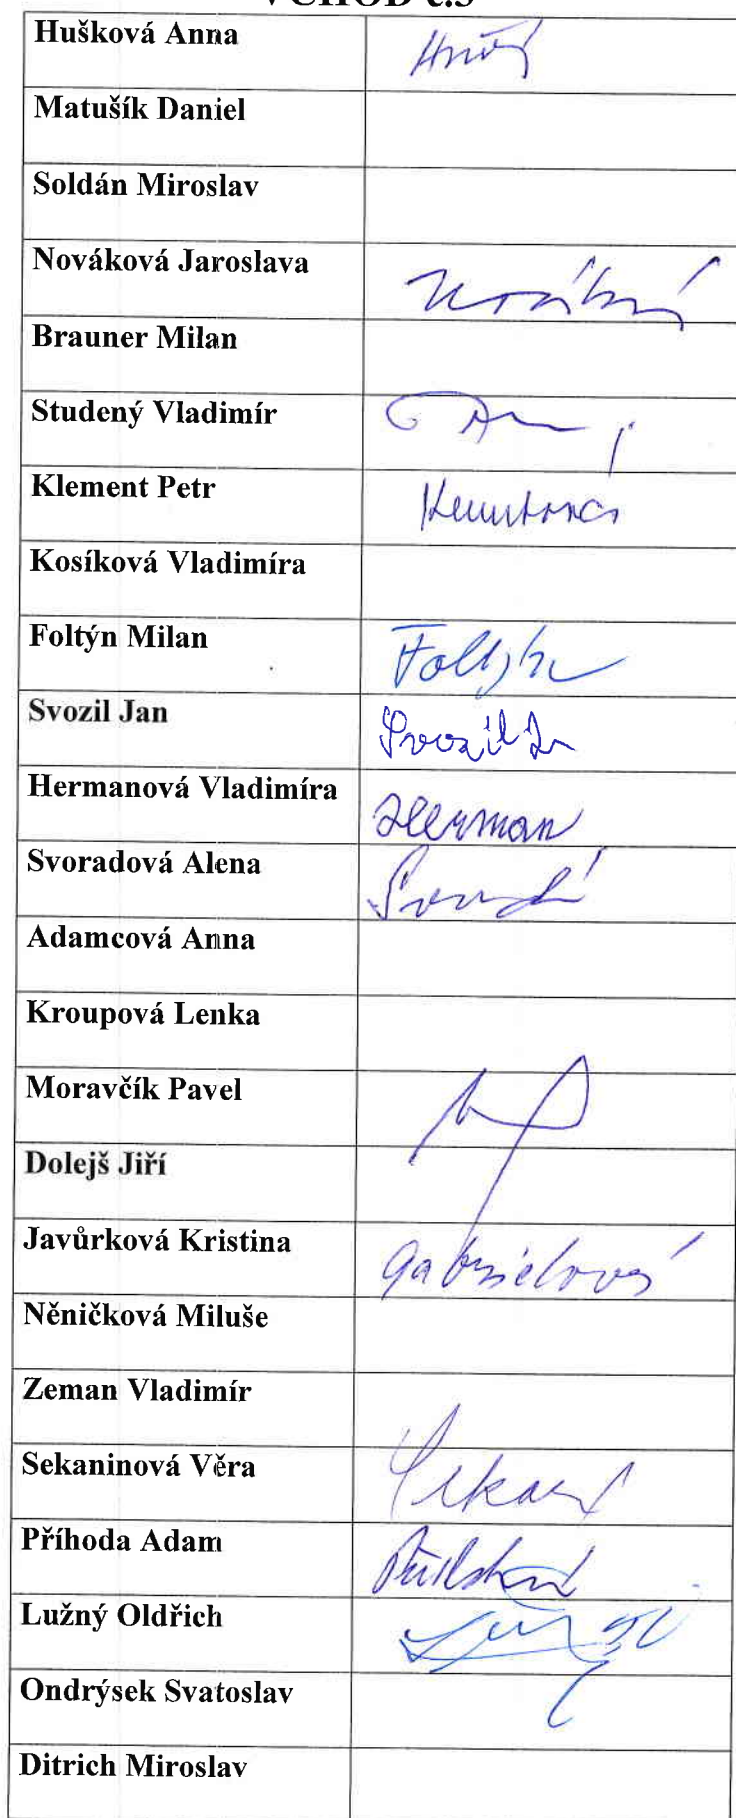 VCHOD č.3
Hušková Anna
Matušík Daniel
Soldán Miroslav
Nováková Jaroslava
Brauner Milan
Studený Vladimír
Klement Petr
Kosíková Vladimíra
Foltýn Milan Foltýn
Svozil Jan Svozil Jn
Hermanová Vladimíra Herman
Svoradová Alena
Adamcová Anna
Kroupová Lenka
Moravčík Pavel
Dolejš Jiří
Javůrková Kristina Gabrielová
Něničková Miluše
Zeman Vladimír
Sekaninová Věra
Příhoda Adam
Lužný Oldřich
Ondrýsek Svatoslav
Ditrich Miroslav